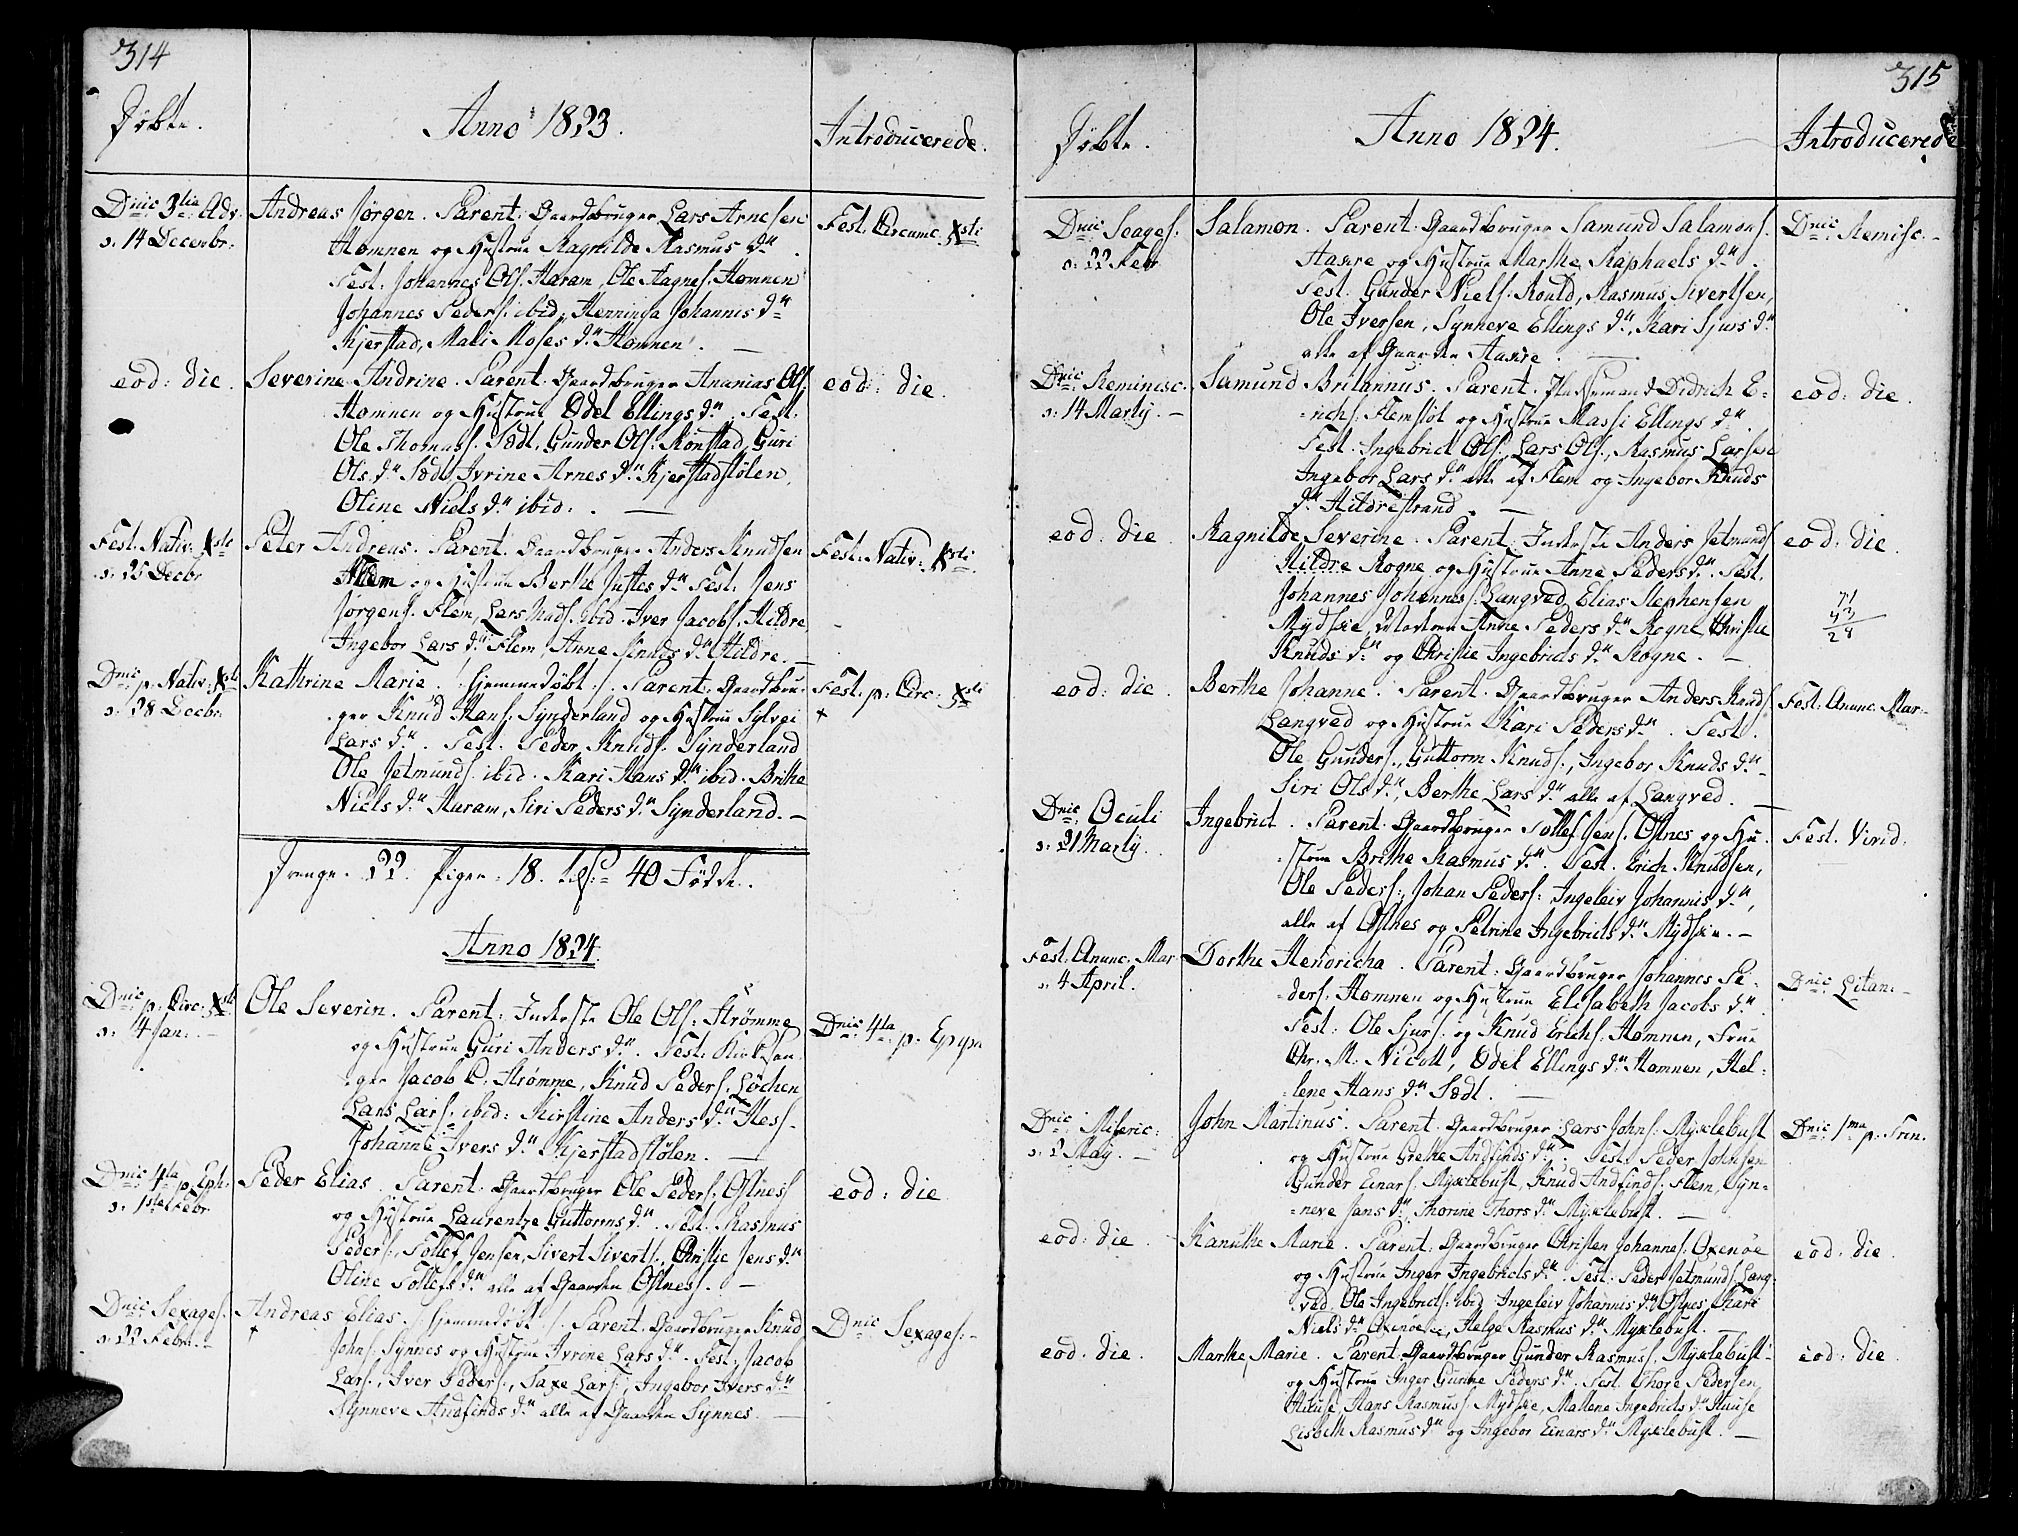 314
Døbte.
Anno 1823.
Introducerede.
Dnic: 3tia Adv:
o: 14 Decenbr:
Andreas Jørgen. Parent: Gaardbruger Lars Arnesen
Hamnen og Hustrue Ragnilde Rasmus Dr.
Test: Johannes Ols: Haram, Ole Aagnes: Hamnen
Johannes Peders: ibid, Henninga Johannis Dr
Kjerstad, Mali Moses Dr Hamnen. —
Fest: Circumc. Xsti
eod: die.
Severine Andrine. Parent: Gaardbruger Ananias Ols:
Hamnen og Hustrue Odel Ellings Dr. Test:
Ole Thomass. Sædt, Gunder Ols: Rønstad, Guri
Ols Dr Sædt, Ivrine Arnes Dr Kjerstadstølen,
Oline Niels Dr ibid: . —
eod: die.
Fest: Nativ: Xsti
o: 25 Decbr
Peter Andreas. Parent: Gaardbruger Anders Knudsen
Flem og Hustrue Berthe Justes Dr Test: Jens
Jørgens. Flem, Lars Mads. ibid. Iver Jacobs. Hildre,
Ingebor Lars Dr Flem, Anne Knuds Dr Hildre. —
Fest: Nativ: Xsti.
Dnic p. Nativ: Xsti
o: 28 Decbr:
Kathrine Marie. /: hjemmedøbt :/. Parent: Gaardbru-
ger Knud Hans: Synderland og Hustrue Sylvei
Lars Dr. Test: Peder Knuds: Synderland
Ole Jetmunds. ibid. Kari Hans Dr ibid. Brithe
Niels Dr Haram, Siri Peders Dr Synderland. —
Fest: p: Circ: Xsti
+
Drenge. 22. Piger. 18. 40 Fødde.
Anno 1824.
Dnic p: Circ: Xsti
o: 4 Jan: —
Ole Severin. Parent: Inderste Ole Ols: Strømme
og Hustrue Guri Anders Dr. Test: Kirksan-
ger Jacob C. Strømme, Knud Peders. Løchen
Lars Lars. ibid: Kirstine Anders Dr Hess-
Johanne Ivers Dr Kjerstadstølen. —
Dnic 4ta p. Epyn
Dnic 4ta p. Eph:
o: 1ste Febr
Peder Elias. Parent: Gaardbruger Ole Peders. Ostnes
og Hustrue Laurentze Guttorms Dr. Test: Rasmus
Peders., Tollef Jensen, Sivert Siverts., Christie Jens Dr
Oline Tollefs Dr alle af Gaarden Ostness. —
eod: die
Dnic Sexages:
o: 22 Febr. —
Andreas Elias. /: hjemmedøbt :/. Parent. Gaardbruger Knud
+
Johns. Synnes og Hustrue Ivrine Lars Dr. Test: Jacob
Lars., Iver Peders., Saxe Lars., Ingebor Ivers Dr
Synneve Andfinds Dr alle af Gaarden Synnes. —
Dnic Sexages: —
315
Døbte.
Anno 1824.
Introducerede
Dnic Seages:
o: 22 Febr
Salamon. Parent: Gaardbruger Samund Salamons.
Hakre og Hustrue Marthe Raphaels Dr.
Test. Gunder Niels. Rould, Rasmus Sivertsen,
Ole Iversen, Synneve Ellings Dr, Kari Sjurs Dr
alle af Gaarden Haure. —
Dnic: Remisc. —
Dnic Reminisc:
o: 14 Marty. —
Samund Britannus. Parent. Pladsemand Didrich E-
-richs. Flemsløt og Hustrue Massi Ellings Dr.
Test. Ingebrict Ols., Lars Ols., Rasmus Larsen
Ingebor Lars Dr alle af Flem og Ingebor Knuds
Dr Hildrestrand. —
eod: die.
eod: die
Ragnilde Severine. Parent. Inderste Anders Jetmunds
Hildre Rogne og Hustrue Anne Peders Dr. Test.
Johannes Johannes. Langved, Elias Stephensen
Mydsæe, Anne Peders Dr Rogne, Christie
Knuds Dr og Christie Ingebricts Dr Rogne. —
eod: die.
71
43
28
eod: die.
Berthe Johanne. Parent. Gaardbruger Anders Knuds.
Langved og Hustrue Kari Peders Dr. Test.
Ole Gunders., Guttorm Knuds., Ingebor Knuds Dr
Siri Ols Dr, Berthe Lars Dr alle af Langved. —
Fest: Anunc. Mar:
Dnic Oculi
o: 21 Marty.
Ingebrict. Parent. Gaardbruger Tollef Jens. Ostnes og Hu-
strue Brithe Rasmus Dr. Test. Erich Knudsen,
Ole Peders., Johan Peders: Ingeleiv Johannis Dr,
alle af Ostnes og Petrine Ingebricts Dr Mydsæe. —
Fest. Virid:
Fest: Anunc: Mar
o: 4 April.
Dorthe Hendricha. Parent: Gaardbruger Johannes Pe-
ders. Hamnen og Hustrue Elisabeth Jacobs Dr.
Test: Ole Sjurs. og Knud Erichs. Hamnen, Frue
Chr. M. Nicoll, Odel Ellings Dr Hamnen, Hel-
lene Hans Dr Sædt. —
Dnic: Litan: —
Dnic: Miseric:
o: 2 May. —
John Martinus. Parent. Gaardbruger Lars Johns. Myxlebust
og Hustrue Grethe Andfinds Dr. Test. Peder Johnsen
Gunder Einars. Myxlebust, Knud Andfinds. Flem, Syn-
neve Jans Dr, Thorine Thors Dr Myxlebust. —
Dnic: 1ma p. Tren.
eod: die.
Kanuthe Marie. Parent: Gaardbruger Christen Johannes. Oxenøe
og Hustrue Inger Ingebricts Dr. Test: Peder Jetmunds. Lang-
ved, Ole Ingebricts. ibid Ingeleiv Johannis Dr Ostnes, Kari
Niels Dr Oxenøe, Helge Rasmus Dr Myxlebust. —
eod: die.
eod: die.
Marthe Marie. Parent. Gaardbruger Gunder Rasmus. Myxlebust
og Hustrue Inger Gurine Peders Dr. Test. Thore Pedersen
Hause, Hans Rasmuss. Mydsæe, Mallene Ingebricts Dr Hause
Lisbeth Rasmus Dr og Ingebor Einars Dr Myxlebust. —
eod: die.